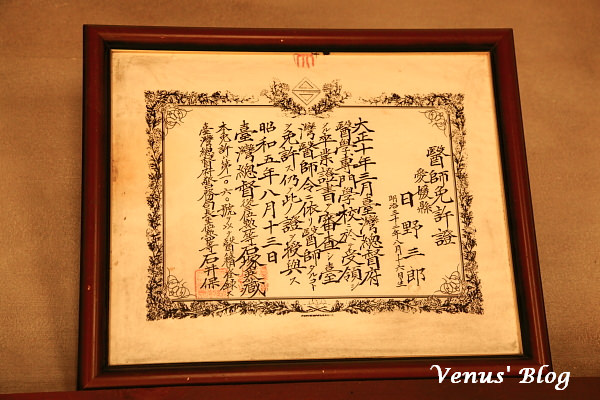 醫師免許證
愛媛縣
日野三郎
明治三十二年八月十六日生
大正十年三月臺灣總督府
醫學專門學校ニ於テ受領シ
タル卒業證書ヲ審査シ臺
灣醫師令ニ依リ醫師タルコト
ヲ免許ス仍テ此ノ證ヲ授與ス
昭和五年八月十三日
臺灣總督從三位勳一等石塚英藏
本免許第一〇六〇號ヲ以テ醫籍ニ登錄ス
臺灣總督府警務局長 石井保
Venus' Blog